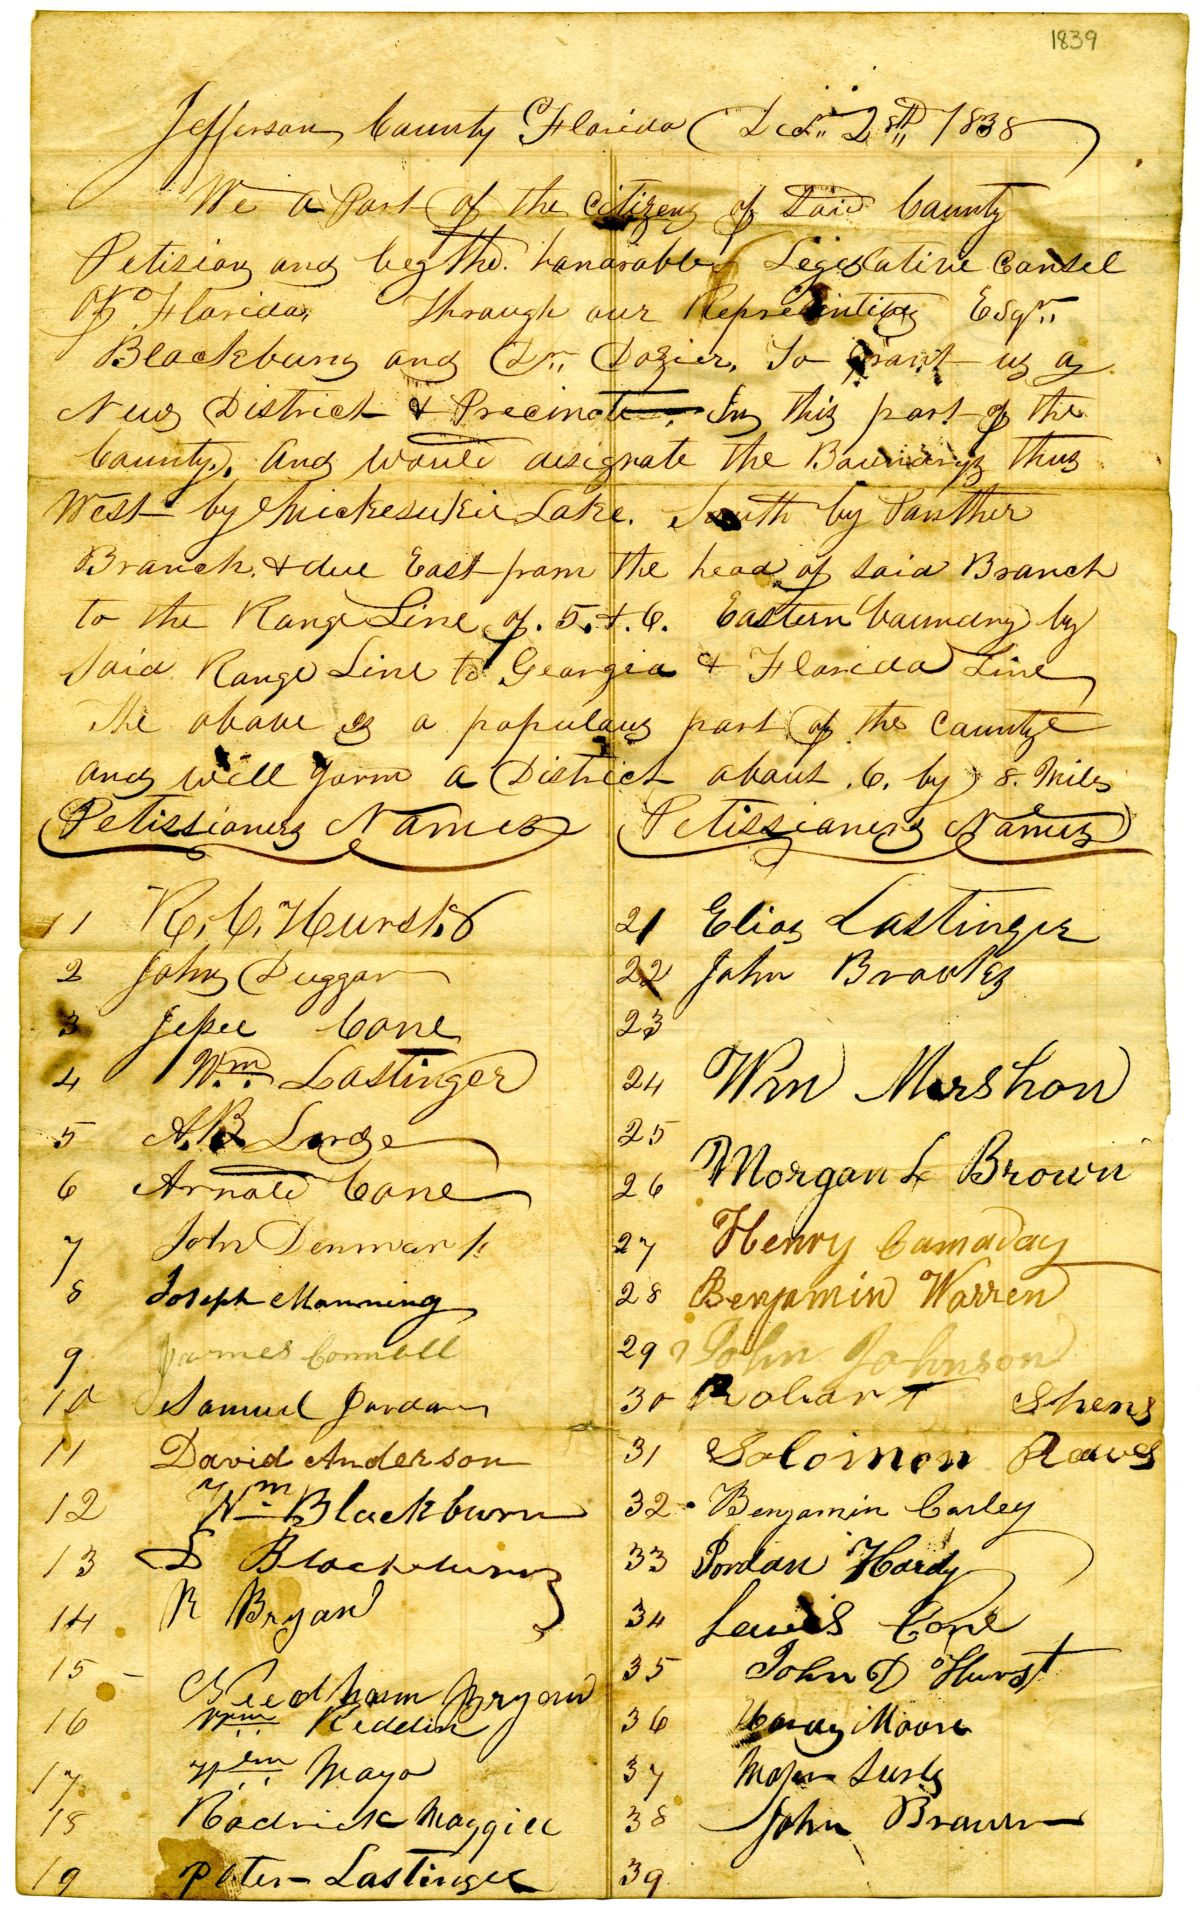 1839
Jefferson County Florida Decr. 28th 1838
We a Part of the Citizens of Said County
Petision and beg the honorable Legeslative Consel
Of Florida, Through our Represintitives Esqr.
Blackburn and Dr. Dozier, To Grant us a
New District & Precinct In this part of the
County, And would designate the Boundrys thus
West by Mickesukie Lake. South by Panther
Branch, & due East from the head of Said Branch
to the Range Line of. 5. & 6. Eastern boundry by
Said Range Line to Georgia & Florida Line
The above is a populous part of the County
and will form a District about .6. by 8. Miles
Petissioners Names
1 R. C. Hurst
2 John Duggar
3 Jessee Cone
4 Wm. Lastinger
5 A.B.
6 Arnold Cone
7 John Denmark
8 Joseph Manning
9 James Connell
10 Samuel Jordan
11 David Anderson
12 Wm Blackburn
13 S Blackburn
14 R Bryan
15 Needham Bryan
16 Wm. Reddin
17 Wm. Mayo
18 Rodrick Maggill
19 Peter Lastinger
Petissioners Names
21 Elias Lastinger
22 John Brooks
23
24 Wm Mershon
25
26 Morgan L Brown
27 Henry Camaday
28 Benjamin Warren
29 John Johnson
30 Robart Shens
31 Solomon Raws
32 Benjamin Carley
33 Jordan Hardy
34 Lewis Cone
35 John D Hurst
36 Moore
37
38 John Brown
39